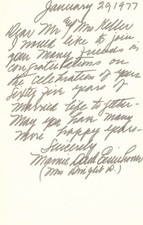 January 29, 1977
Dear Mr & Mrs Keller
I would like to join
your many friends in
congratulations on
the celebration of your
sixty five years of
married life together.
May you have many
more happy years—
Sincerely
Mamie Doud Eisenhower
(Mrs Dwight D.)